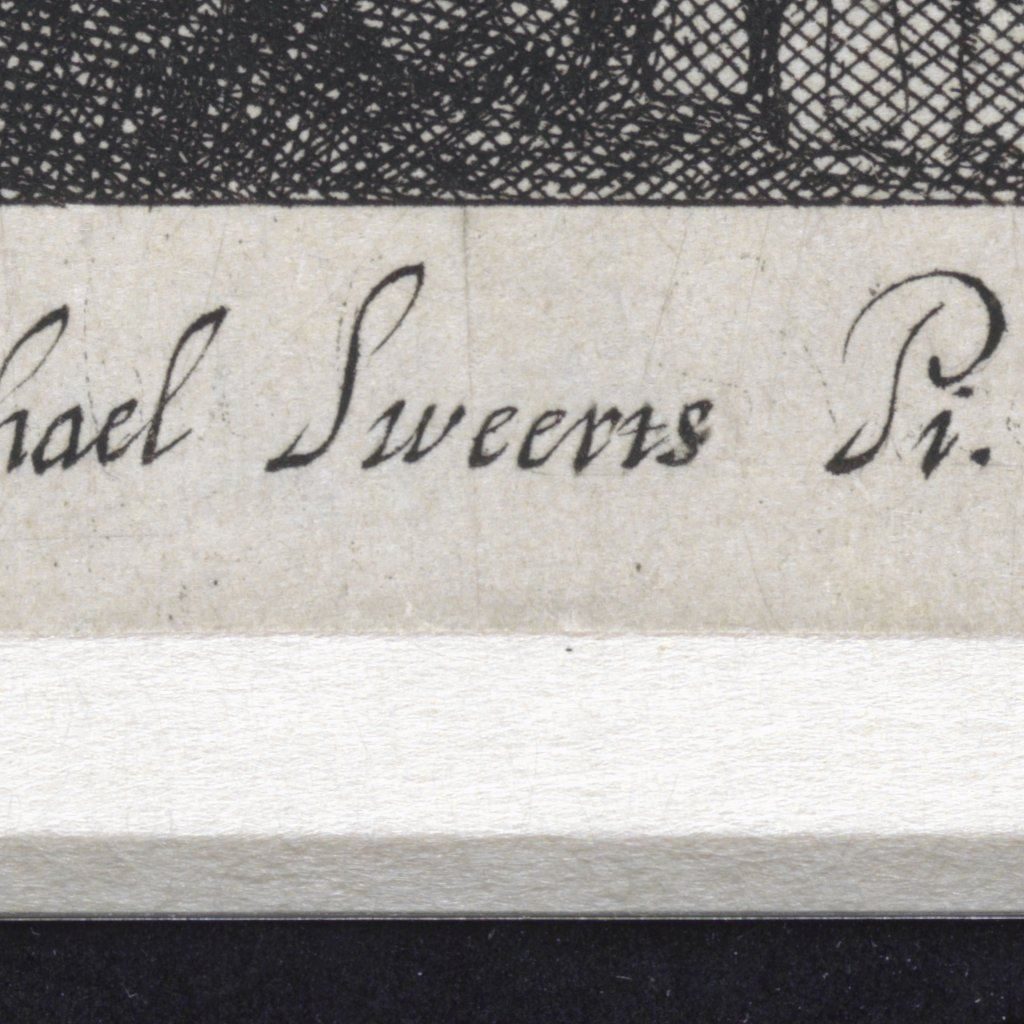 hael Sweerts Pi.